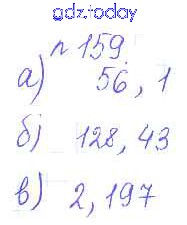 gdz.today
№ 159.
а) 56, 1
б) 128, 43
в) 2, 197